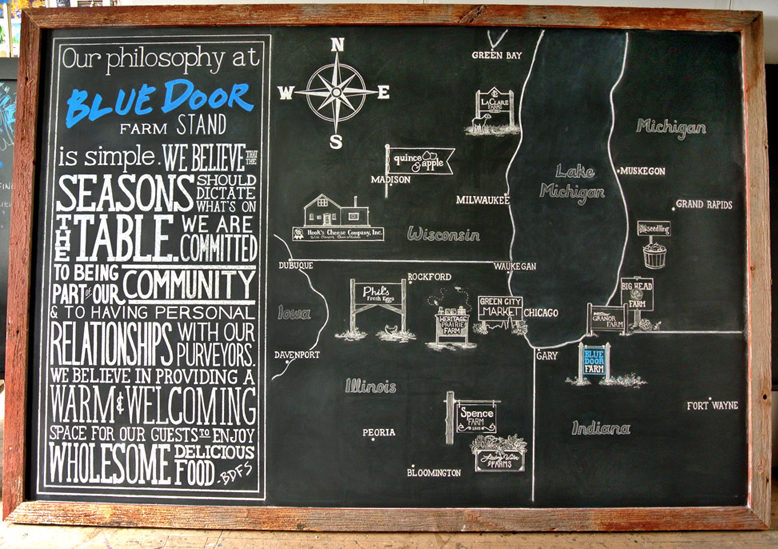 Our philosophy at
BLUE DOOR
FARM STAND
is simple. WE BELIEVE THAT THE
SEASONS SHOULD DICTATE WHAT'S ON
THE TABLE. WE ARE COMMITTED
TO BEING PART OF OUR COMMUNITY
& TO HAVING PERSONAL
RELATIONSHIPS WITH OUR PURVEYORS.
WE BELIEVE IN PROVIDING A
WARM & WELCOMING
SPACE FOR OUR GUESTS TO ENJOY
WHOLESOME DELICIOUS FOOD. -BDFS
N
W E
S
GREEN BAY
LACLARE
FARMS
Michigan
quince & apple
MADISON
Lake
Michigan
MUSKEGON
MILWAUKEE
GRAND RAPIDS
Hook's Cheese Company, Inc.
Wisconsin
DUBUQUE
WAUKEGAN
ROCKFORD
Phil's
Fresh Eggs
BIG HEAD
FARM
Iowa
GREEN CITY
MARKET
CHICAGO
HERITAGE
PRAIRIE
FARM
GRANOR FARM
DAVENPORT
GARY
BLUE
DOOR
FARM
Illinois
Spence
FARM
FORT WAYNE
PEORIA
Indiana
FARMS
BLOOMINGTON